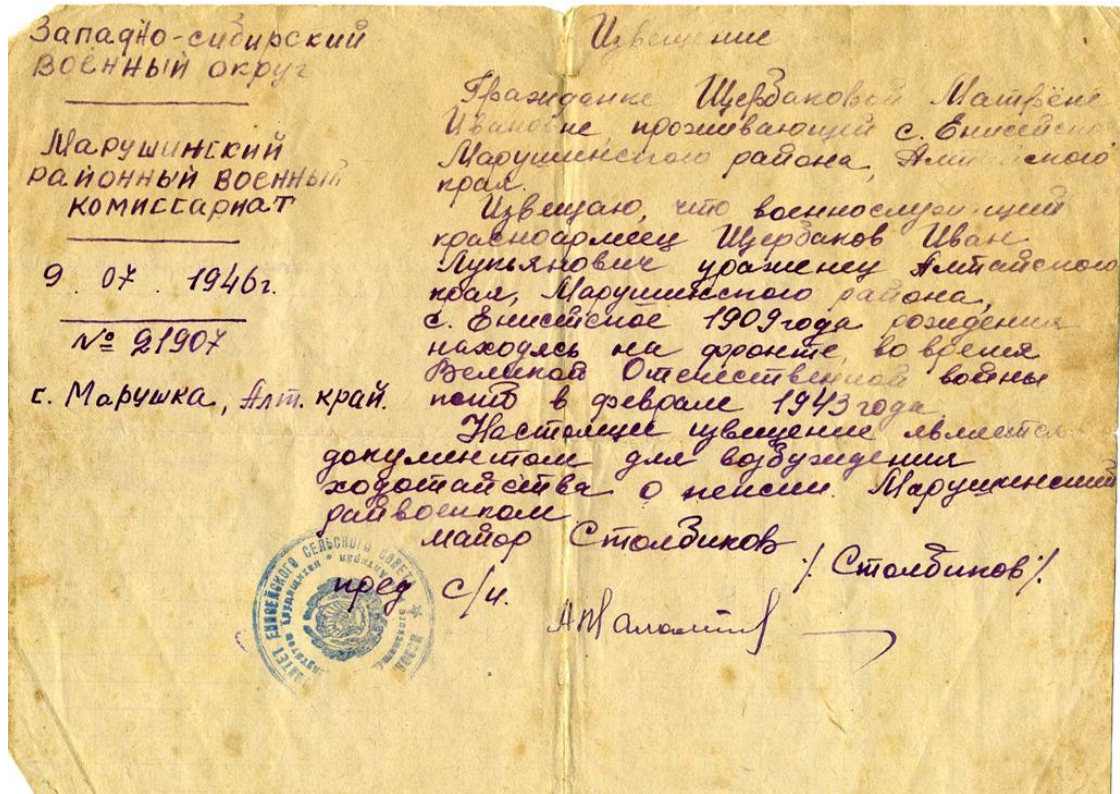 Западно-сибирский
военный округ
Марушинский
районный военный
комиссариат
9. 07. 1946г.
№ 21907
с. Марушка, Алт. край.
Извещение
Гражданке Щербаковой Матрёне
Ивановне, проживающей с. Енисейско
Марушинского района, Алтайского
края.
Извещаю, что военнослужащий
красноармеец Щербаков Иван
Лукьянович уроженец Алтайского
края, Марушинского района,
с. Енисейское 1909 года рождения
находясь на фронте, во время
Великой Отечественной войны
погиб в феврале 1943 года.
Настоящее извещение является
документом для возбуждения
ходотайства о пенсии. Марушинский
райвоенком
майор Столбиков
/. Столбиков ./
пред с/и.
ЕНИСЕЙСКОГО СЕЛЬСКОГО СОВЕТ